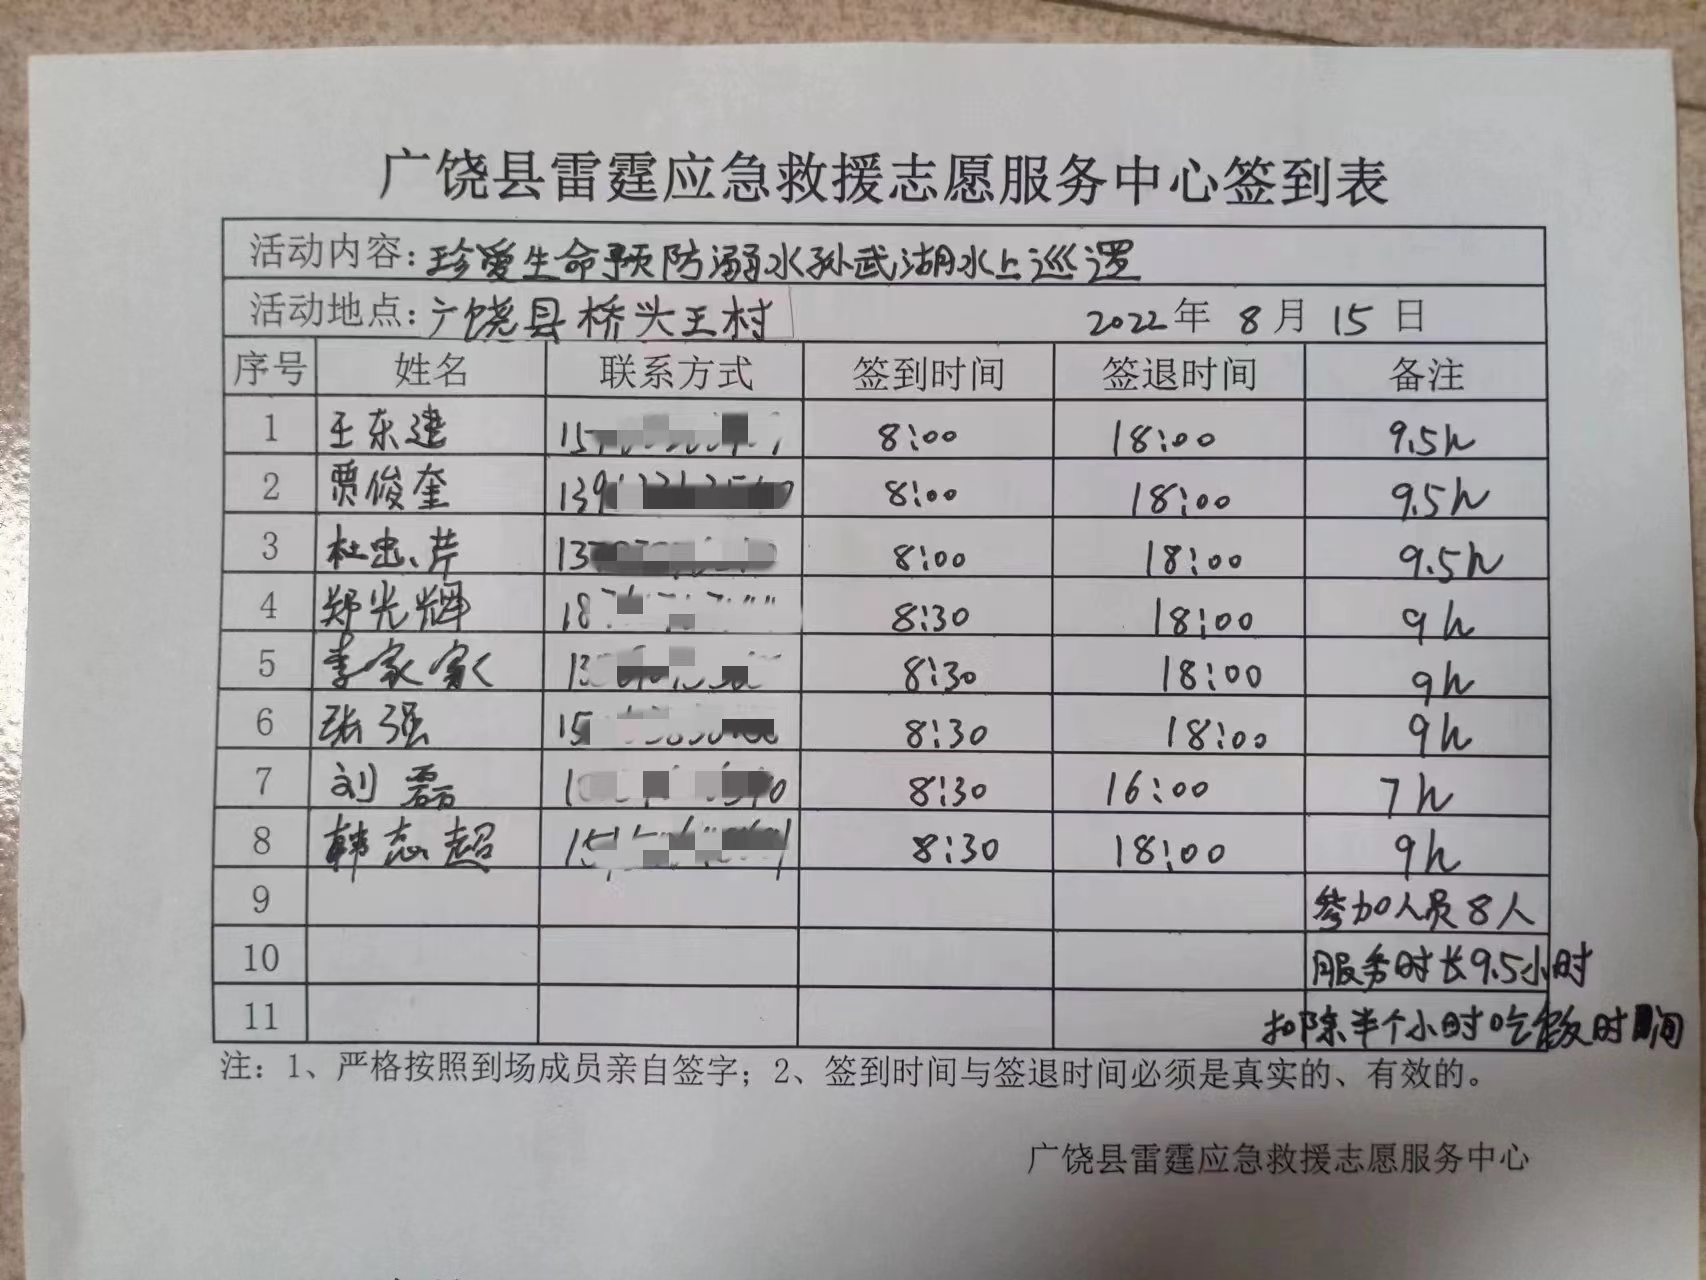 广饶县雷霆应急救援志愿服务中心签到表
活动内容：珍爱生命预防溺水孙武湖水上巡逻
活动地点：广饶县桥头王村 2022年 8月 15日
序号 姓名 联系方式 签到时间 签退时间 备注
1 王东建 15 8:00 18:00 9.5h
2 贾俊奎 139 8:00 18:00 9.5h
3 杜忠芹 13 8:00 18:00 9.5h
4 郑光辉 187 8:30 18:00 9h
5 李家家 13 8:30 18:00 9h
6 张强 15 8:30 18:00 9h
7 刘磊 1 8:30 16:00 7h
8 韩志超 15 8:30 18:00 9h
9 参加人员8人
10 服务时长9.5小时
11 扣除半个小时吃饭时间
注：1、严格按照到场成员亲自签字；2、签到时间与签退时间必须是真实的、有效的。
广饶县雷霆应急救援志愿服务中心